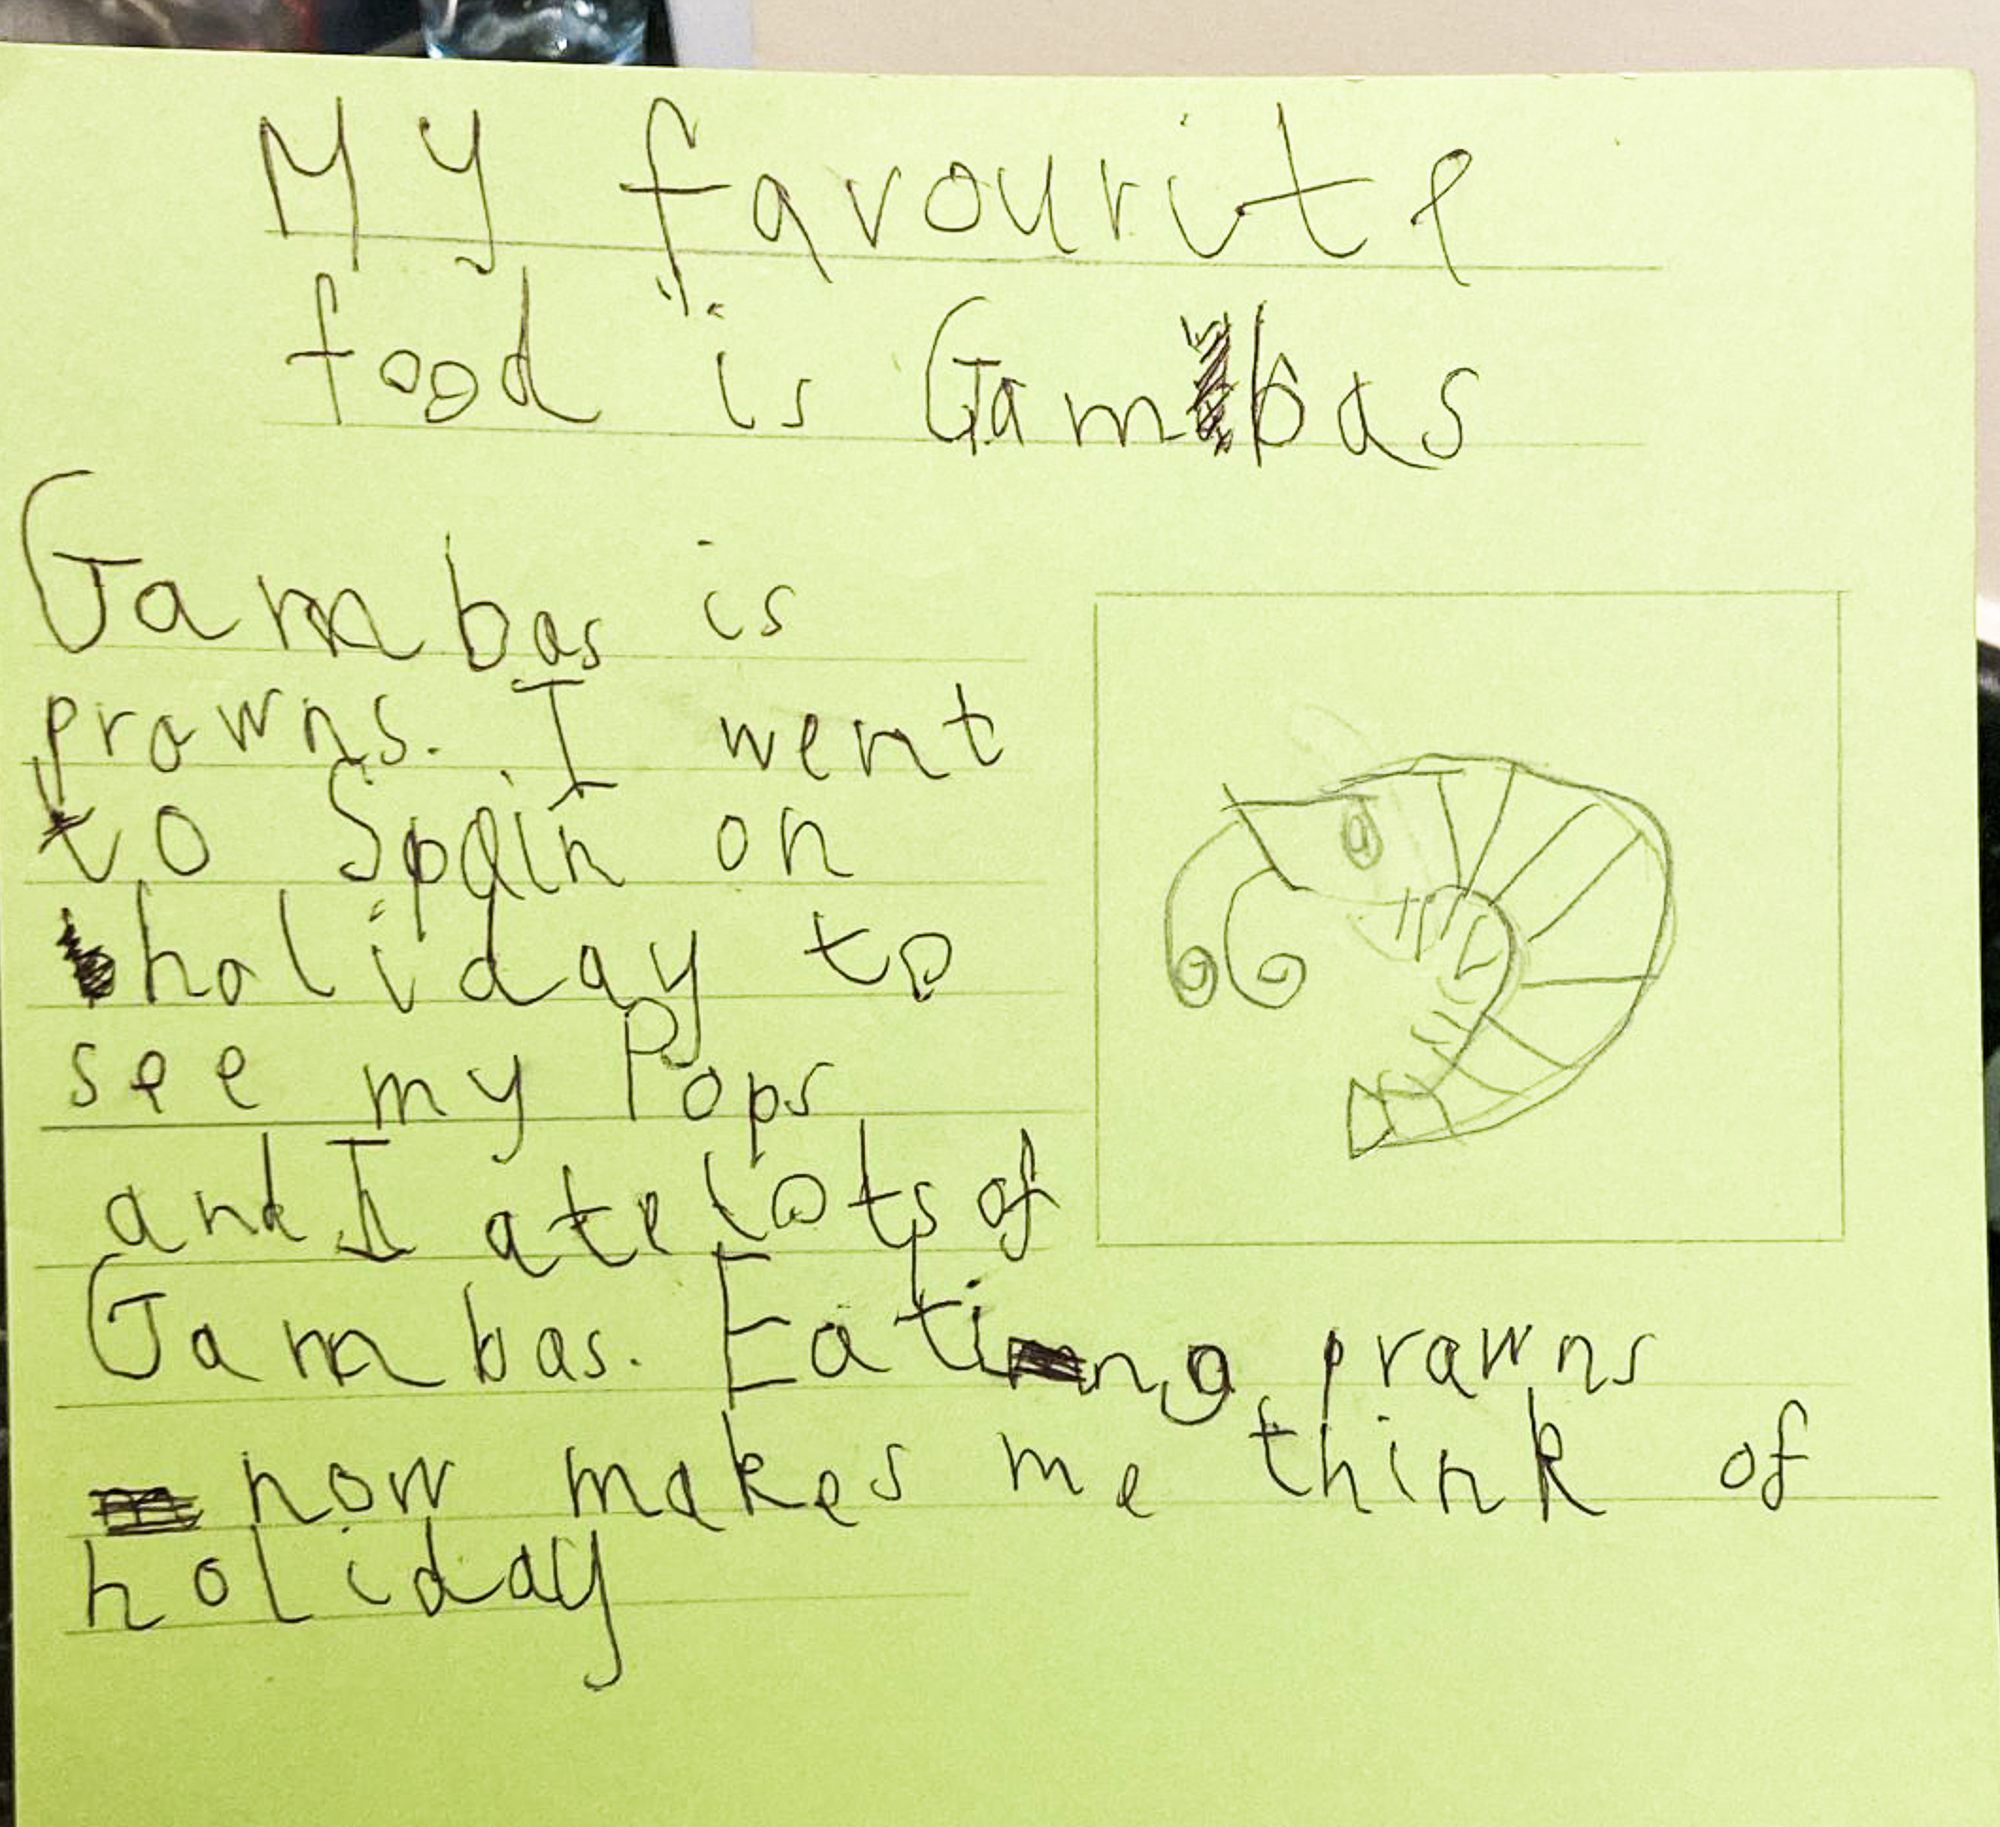 My favourite
food is Gambas
Gambas is
prawns. I went
to Spain on
holiday to
see my Pops
and I ate lots of
Gambas. Eating prawns
now makes me think of
holiday